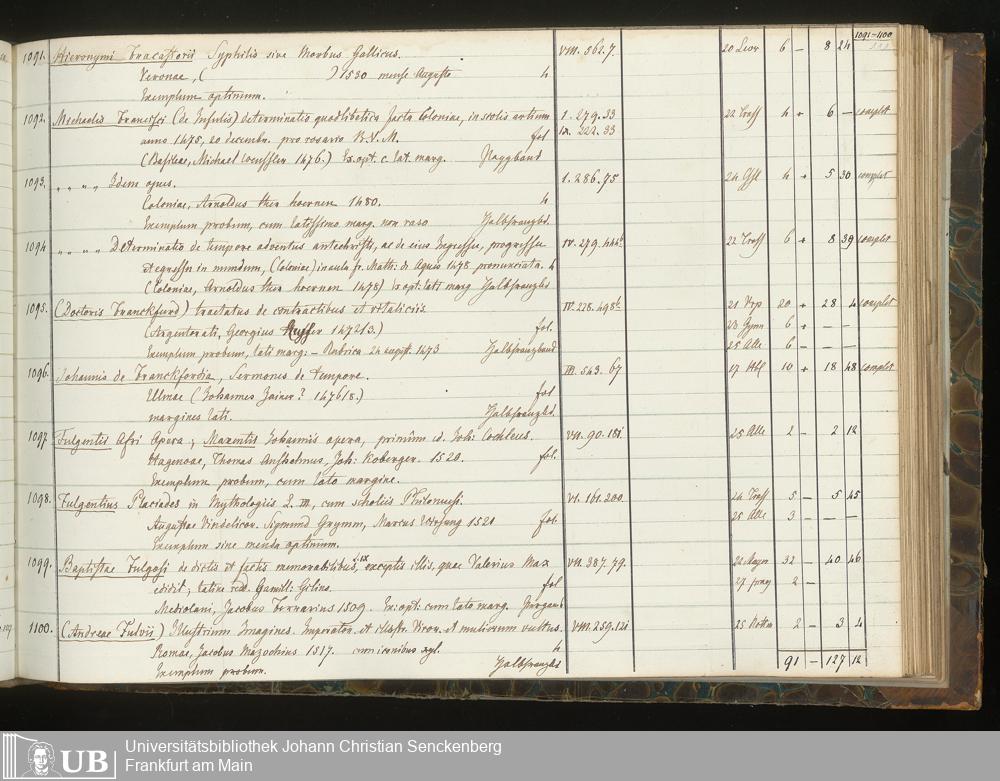 1091–1100
1091. Hieronymi Fracastorii Syphilis sive Morbus Gallicus. VIII. 562.7. 20 6 – 8 24
Veronae, ( ) 1530 mense Augusto 4
Exemplum optimum.
1092. Michaelis Francisci (de Insulis) determinatio quodlibetica facta Coloniae, in scolis artium 1. 279.33 22 4 + 6 – complet
anno 1475, 20 decembr. pro rosario B.V.M. fol IX. 222. 33
(Basileae, Michael Wenssler 1476.) Ex. opt. c. lat. marg. Pappband
1093. „ „ „ „ Idem opus. 1. 286. 75 24 4 + 5 30 complet
Coloniae, Arnoldus ther hoernen 1480. 4
Exemplum probum, cum latissimo marg. non raso Halbfranzbd.
1094 „ „ „ „ Determinatio de tempore adventus antechristi, ac de eius Ingressu, progressu IV. 279. 22 6 + 8 39 complet
et egressu in mundum, (Coloniae) in aula fr. Math: de Aquis 1478 pronunciata. 4
(Coloniae, Arnoldus ther hoernen 1478) Ex opt: lati marg Halbfranzbd
1095. (Doctoris Franckfurd) tractatus de contractibus et vitaliciis IV. 228. 498 21 20 + 28 4 complet
(Argentorati, Georgius 1472/3.) fol. 23 6 + – –
Exemplum probum, lati marg: – Rubrica 24 augusti 1473 Halbfranzband 25 Alle 6 – – –
1096. Johannis de Franckfordia, Sermones de tempore. III. 543. 67 17 10 + 18 48 complet
Ulmae (Johannes Zainer? 1476/8.) fol
margines lati. Halbfranzbd.
1097 Fulgentii Afri Opera; Maxentii Johannis opera, primum ed. Joh: Cochleus. VII. 90. 181 25 Alle 2 – 2 12
Hagenoae, Thomas Anshelmus, Joh: Koberger. 1520. fol.
Exemplum probum, cum lato margine.
1098. Fulgentius Placiades in Mythologiis L. III, cum scholiis Philomusi. VI. 161. 200. 24 5 – 5 45
Augustae Vindelicor. Sigmund Grymm, Marcus Wirsung 1521 fol. 25 Alle 3 – – –
Exemplum sine menda optimum.
1099. Baptistae Fulgosi de dictis et factis memorabilibus, L. IX exceptis illis, quae Valerius Max VII. 387. 79. 22 Mayer 32 – 40 46
edidit; latine red. Camill: Gilino. fol 27 2 –
Mediolani, Jacobus Ferrarius 1509. Ex: opt: cum lato marg. Pergam
1100. (Andreae Fulvii) Illustrium Imagines. Imperator. et illustr. Viror. et mulierum vultus. VIII. 259. 121 25 2 – 3 4
Romae, Jacobus Mazochius 1517. cum iconibus xyl. 4
Exemplum probum. Halbfranzbd 91 – 127 12
UB
Universitätsbibliothek Johann Christian Senckenberg
Frankfurt am Main